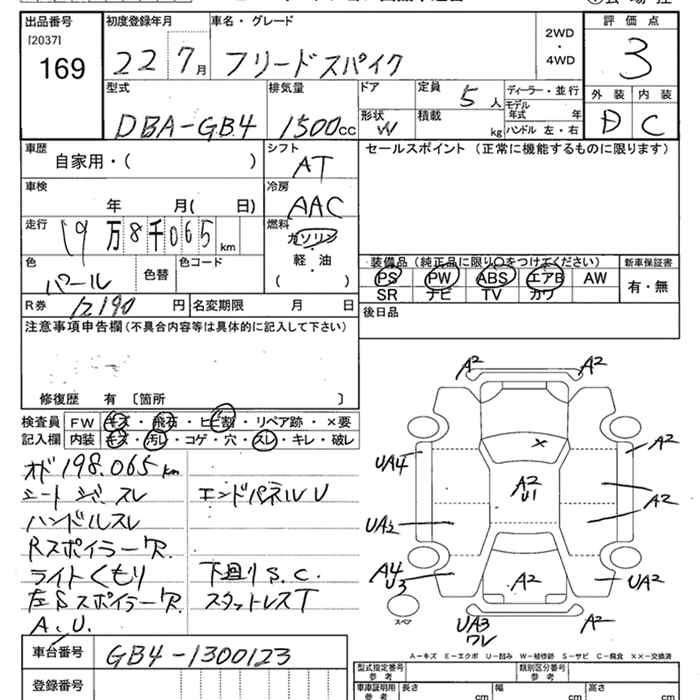 出品番号 初度登録年月 車名・グレード 評価点
[2037]
169 22 7月 フリードスパイク 2WD・4WD 3
型式 排気量 ドア 定員 5人 ディーラー・並行 外装 内装
DBA-GB4 1500cc 形状 W 積載 kg モデル年式 年 ハンドル 左・右 D C
車歴 シフト セールスポイント (正常に機能するものに限ります)
自家用・( ) AT
車検 冷房
年 月( 日) AAC
走行 燃料
19万8千065km ガソリン
軽・油
( )
装備品 (純正品に限り〇をつけてください) 新車保証書
色 色替 色コード
パール
PS PW ABS エアB AW 有・無
SR ナビ TV カワ
R券 12190円 名変期限 月 日 後日品
注意事項申告欄 (不具合内容等は具体的に記入して下さい)
修復歴 有 〔箇所 〕
検査員 FW キズ・飛石・ヒビ割・リペア跡・×要
記入欄 内装 キズ・汚レ・コゲ・穴・スレ・キレ・破レ
オド198.065km
シートシワ.スレ エンドパネルU
ハンドルスレ
RスポイラーワR.
ライトくもり 下廻りS.C.
左SスポイラーワR. スタットレスT
A.U.
A2 A2
UA4 A2
A2
U1
UA2 A2
A4
U3 A2 UA2
スペア
UA3
ワレ A2
A－キズ E－エクボ U－凹み W－補修跡 S－サビ C－腐食 ××－交換済
車台番号 GB4-1300123
登録番号
型式指定番号 類別区分番号
参考 参考
車庫証明用 長さ 幅 高さ
参考 cm cm cm